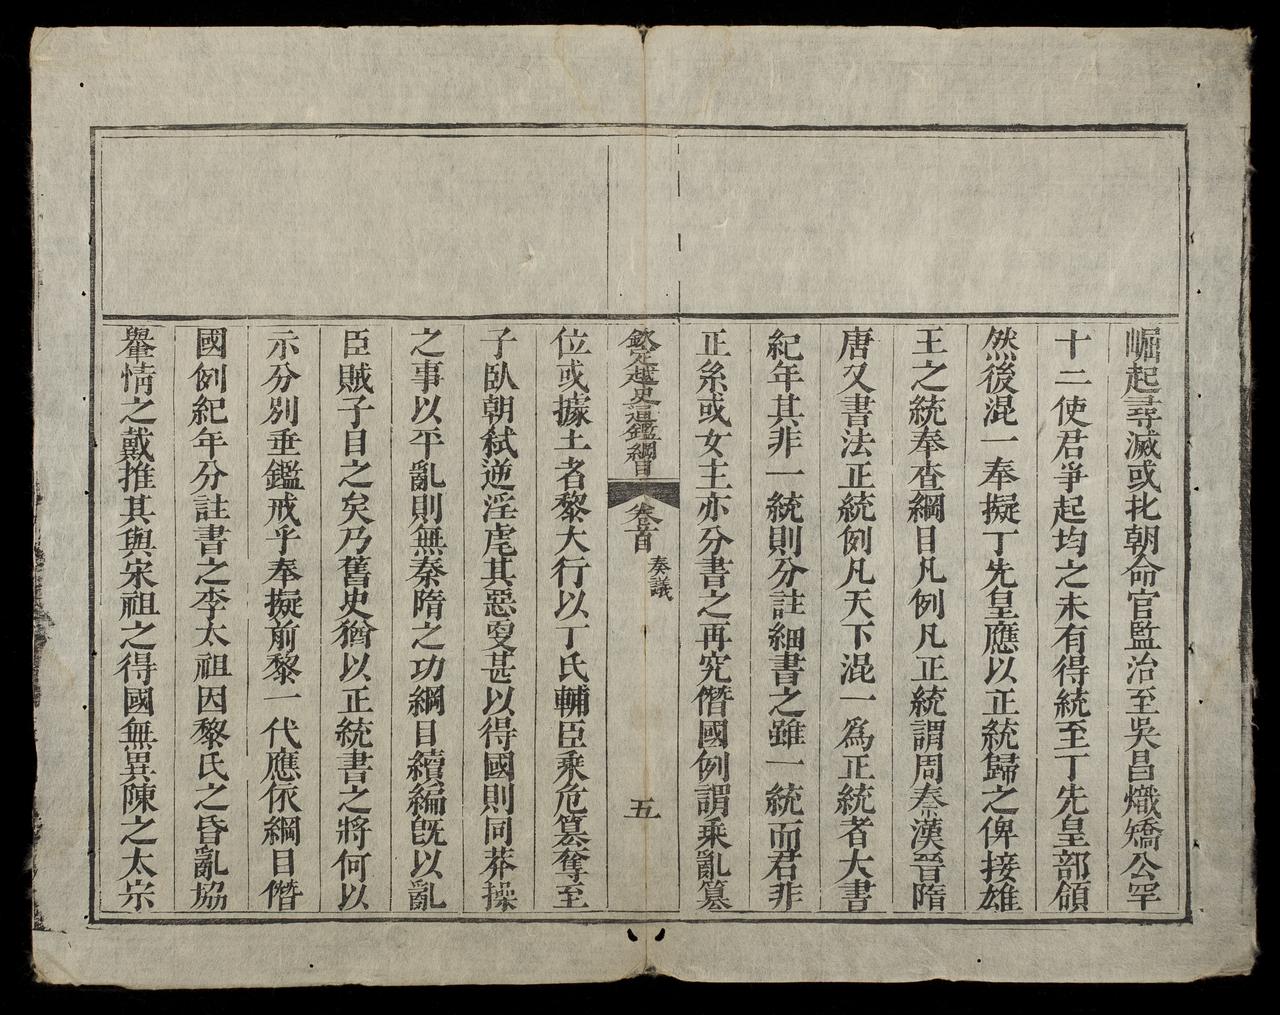 崛起尋滅或北朝命官監治至吳昌熾矯公罕
十二使君爭起均之未有得統至丁先皇部領
然後混一奉擬丁先皇應以正統歸之俾接雄
王之統奉查綱目凡例凡正統謂周秦漢晉隋
唐又書法正統例凡天下混一爲正統者大書
紀年其非一統則分註細書之雖一統而君非
正系或女主亦分書之再究僭國例謂乘亂篡
欽定越史通鑑綱目 卷之首 奏議 五
位或據土者黎大行以丁氏輔臣乘危篡奪至
子臥朝弒逆淫虐其惡更甚以得國則同莽操
之事以平亂則無秦隋之功綱目續編旣以亂
臣賊子目之矣乃舊史猶以正統書之將何以
示分別垂鑑戒乎奉擬前黎一代應依綱目僭
國例紀年分註書之李太祖因黎氏之昏亂協
羣情之戴推其與宋祖之得國無異陳之太宗